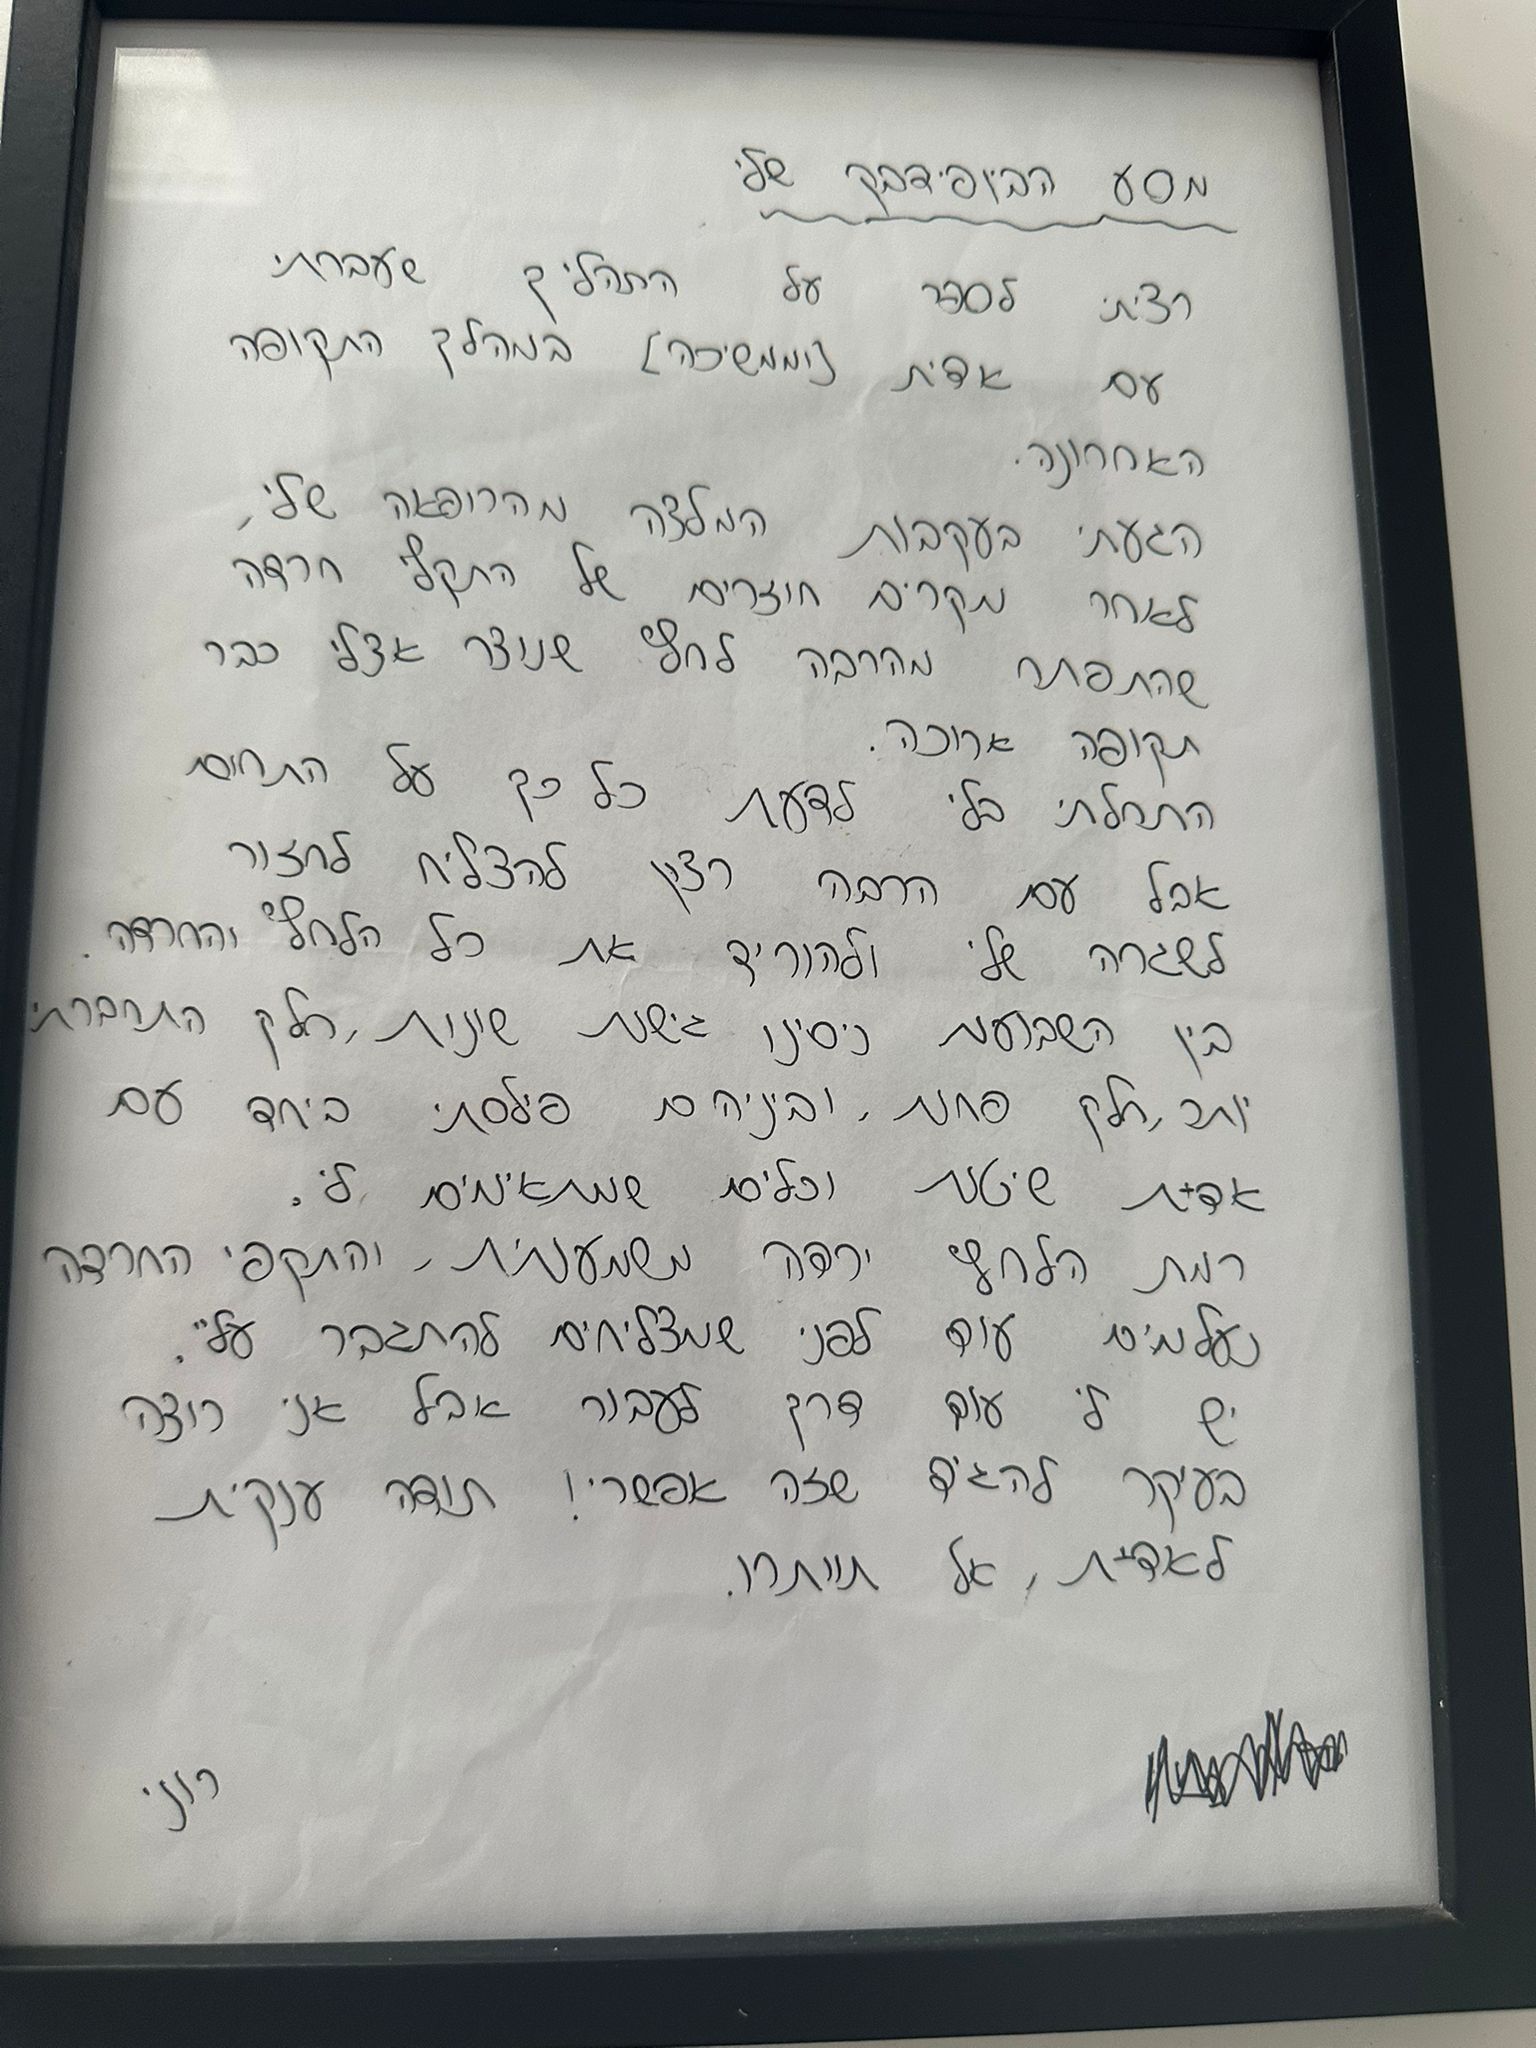 מסע הביופידבק שלי
רציתי לספר על התהליך שעברתי
עם אדית (וממשיכה) במהלך התקופה
האחרונה.
הגעתי בעקבות המלצה מהרופאה שלי,
לאחר מקרים חוזרים של התקפי חרדה
שהתפתח מהרבה לחץ שנוצר אצלי כבר
תקופה ארוכה.
התחלתי בלי לדעת כל כך על התחום
אבל עם הרבה רצון להצליח לחזור
לשגרה שלי ולהוריד את כל הלחץ והחרדה.
בין השבועות ניסינו גישות שונות, חלק התחברתי
יותר, חלק פחות, וביניהם פילסתי ביחד עם
אדית שיטות וכלים שמתאימים לי.
רמת הלחץ ירדה משמעותית, והתקפי החרדה
נעלמים עוד לפני שמצליחים להתגבר עליי.
יש לי עוד דרך לעבור אבל אני רוצה
בעיקר להגיד שזה אפשרי! תודה ענקית
לאדית, אל תוותרו.
רוני